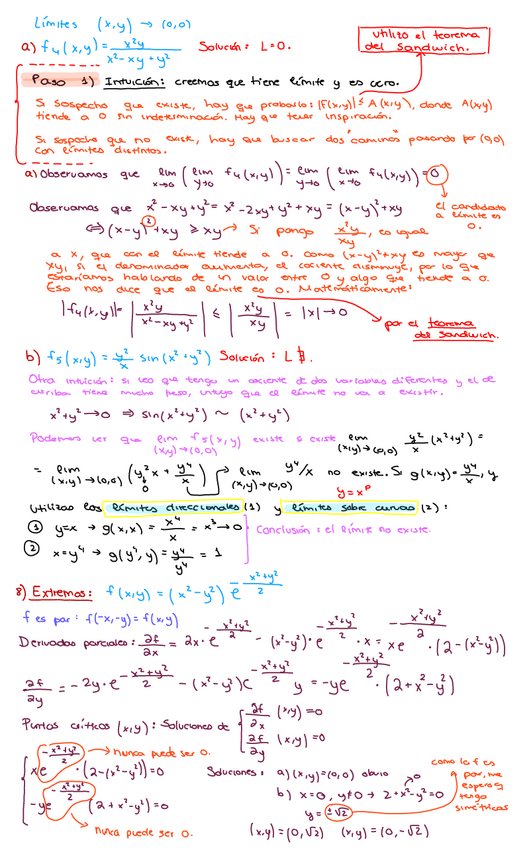 Límites (x,y) → (0,0)
a) f₄(x,y) = x²y / (x² - xy + y²) Solución: L=0.
utilizo el teorema del Sandwich.
Paso 1) Intuición: creemos que tiene límite y es cero.
Si sospecho que existe, hay que probarlo: |f(x,y)| ≤ A(x,y), donde A(x,y)
tiende a 0 sin indeterminación. Hay que tener inspiración.
Si sospecho que no existe, hay que buscar dos "caminos" pasando por (0,0)
con límites distintos.
a) Observamos que lim x→0 (lim y→0 f₄(x,y)) = lim y→0 (lim x→0 f₄(x,y)) = 0
el candidato a límite es 0.
Observamos que x² - xy + y² = x² - 2xy + y² + xy = (x-y)² + xy
⇔ (x-y)² + xy ≥ xy → Si pongo x²y / xy, es igual
a x, que con el límite tiende a 0. Como (x-y)² + xy es mayor que
xy, si el denominador aumenta, el cociente disminuye, por lo que
estaríamos hablando de un valor entre 0 y algo que tiende a 0.
Eso nos dice que el límite es 0. Matemáticamente:
|f₄(x,y)| = |x²y / (x² - xy + y²)| ≤ |x²y / xy| = |x| → 0
por el teorema del Sandwich.
b) f₅(x,y) = y²/x sin(x²+y²) Solución: L ∄.
Otra intuición: si veo que tengo un cociente de dos variables diferentes y el de
arriba tiene mucho peso, intuyo que el límite no va a existir.
x²+y² → 0 ⇒ sin(x²+y²) ~ (x²+y²)
Podemos ver que lim (x,y)→(0,0) f₅(x,y) existe si existe lim (x,y)→(0,0) y²/x (x²+y²) =
= lim (x,y)→(0,0) (y²x + y⁴/x) → lim (x,y)→(0,0) y⁴/x no existe. Si g(x,y) = y⁴/x, y
0
y=xᵖ
Utilizas los límites direccionales (1) y límites sobre curvas (2):
① y=x → g(x,x) = x⁴/x = x³ → 0
② x=y⁴ → g(y⁴,y) = y⁴/y⁴ = 1
Conclusión: el límite no existe.
8) Extremos: f(x,y) = (x²-y²) e^(-(x²+y²)/2)
f es par: f(-x,-y) = f(x,y)
Derivadas parciales: ∂f/∂x = 2x·e^(-(x²+y²)/2) - (x²-y²)·e^(-(x²+y²)/2)·x = xe^(-(x²+y²)/2)·(2-(x²-y²))
∂f/∂y = -2y·e^(-(x²+y²)/2) - (x²-y²)e^(-(x²+y²)/2) y = -ye^(-(x²+y²)/2)·(2+x²-y²)
Puntos críticos (x,y): Soluciones de { ∂f/∂x (x,y)=0
∂f/∂y (x,y)=0
xe^(-(x²+y²)/2) (2-(x²-y²))=0
nunca puede ser 0.
-ye^(-(x²+y²)/2) (2+x²-y²)=0
nunca puede ser 0.
Soluciones: a) (x,y)=(0,0) obvio
b) x=0, y≠0 → 2+x²-y²=0
0
y=±√2
(x,y)=(0,√2) (x,y)=(0,-√2)
como la f es
par, me
espero
tengo
simétricas